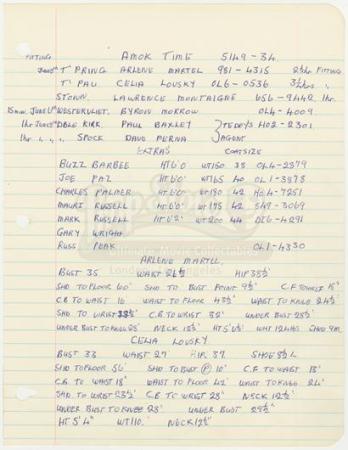 FITTING AMOK TIME 5149-34.
JUNE T'PRING ARLENE MARTEL 981-4315 2½hr FITTING
T'PAU CELIA LOVSKY OL6-0536 3½hrs "
STONN. LAWRENCE MONTAIGNE 656-9442 1hr.
15min JUNE WESTERVLIET. BYRON MORROW OL4-4009
1hr JUNE DBLE KIRK. PAUL BAXLEY } TEDDYS HO2-2301
1hr " " SPOCK DAVE PERNA } AGENT
EXTRAS COATSIZE
BUZZ BARBEE HT 6'0" WT 150 38 OL4-2879
JOE PAZ HT 6'0" WT 165 40 OL1-3878
CHARLES PALMER HT 6'0" WT 190 42 HO4-7251
MAURI RUSSELL HT 6'0" WT 175 42 549-3069
MARK RUSSELL HT 6'2" WT 200 44 OL6-4291
GARY WRIGHT
RUSS PEAK OL1-4330
ARLENE MARTEL.
BUST 35 WAIST 26½ HIP 35½
SHD TO FLOOR 60" SHD TO BUST POINT 9½" C.F TO WAIST 15"
C.B TO WAIST 16" WAIST TO FLOOR 43½" WAIST TO KNEE 24½"
SHD TO WRIST 23½" C.B TO WRIST 32" UNDER BUST 28½"
UNDER BUST TO KNEE 28" NECK 13½" HT 5'6½" WT 124lbs SHOE 9M.
CELIA LOVSKY
BUST 33 WAIST 27" HIP 37. SHOE 8½ L
SHD TO FLOOR 56" SHD TO BUST P 10" C.F TO WAIST 13"
C.B TO WAIST 18" WAIST TO FLOOR 42" WAIST TO KNEE 24"
SHD. TO WRIST 23½" C.B TO WRIST 28" NECK 12½"
UNDER BUST TO KNEE 28" UNDER BUST 29½"
HT 5'4" WT 110. NECK 12½"
Ultimate Movie Collectables
London - Los Angeles